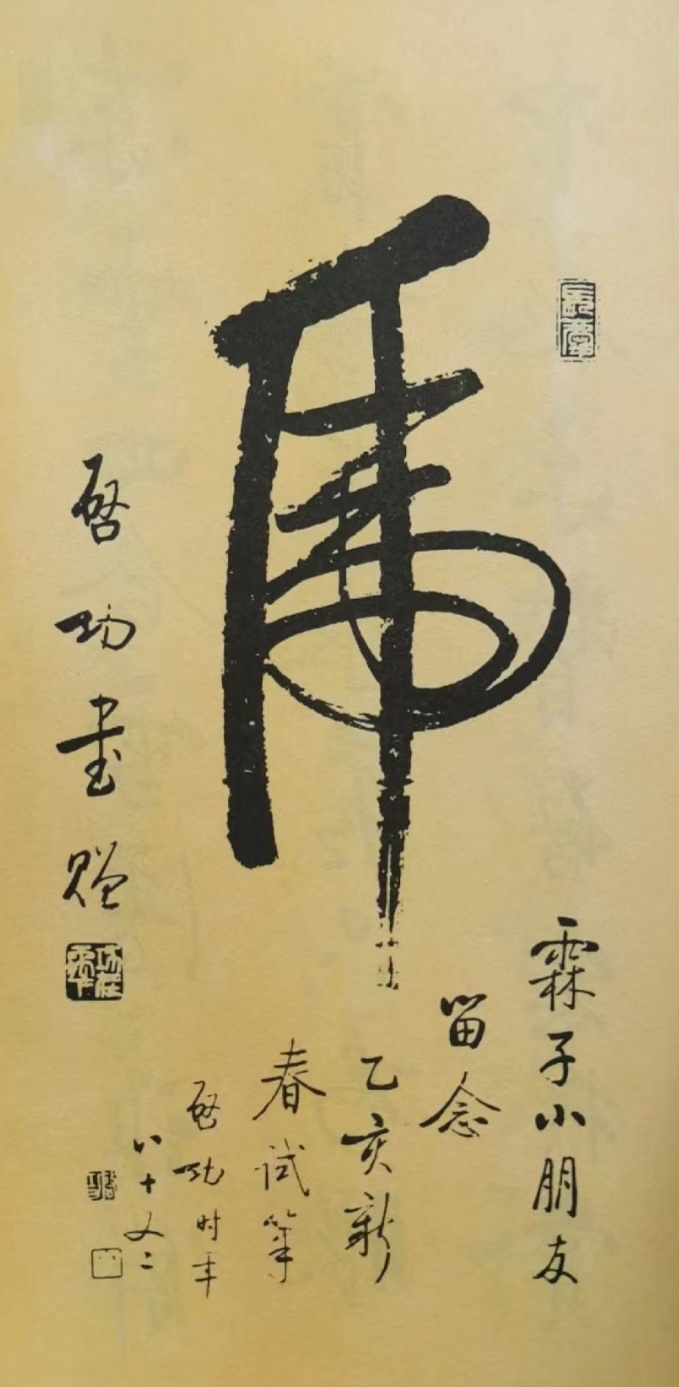 虎
霖子小朋友
留念
乙亥新
春试笔
启功时年
八十又二
启功书赠